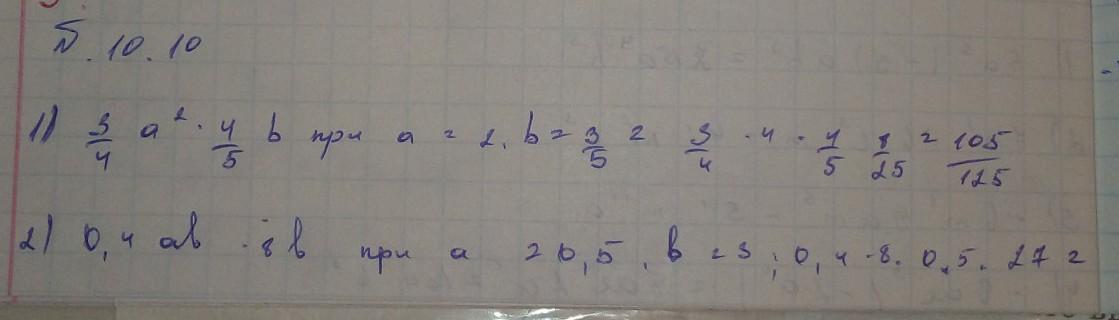 N. 10.10
1) 3/4 a² · 4/5 b при a = 2, b = 3/5 = 3/4 · 4 · 4/5 9/25 = 105/125
2) 0,4 ab · 8 b при a = 0,5, b = 3; 0,4 · 8 · 0,5 · 27 =